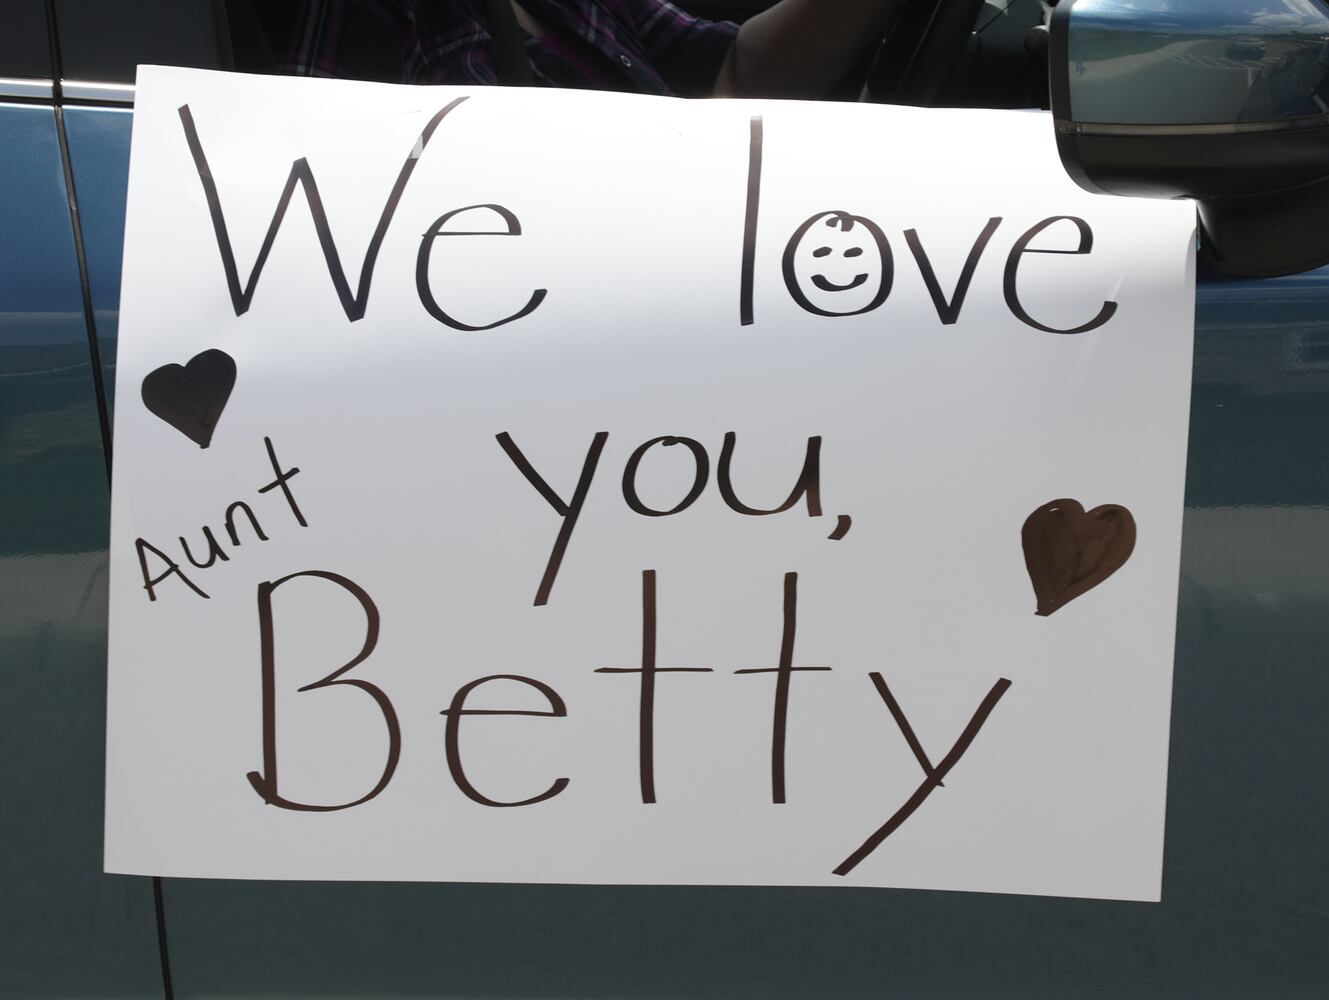 We love
you,
Aunt
Betty